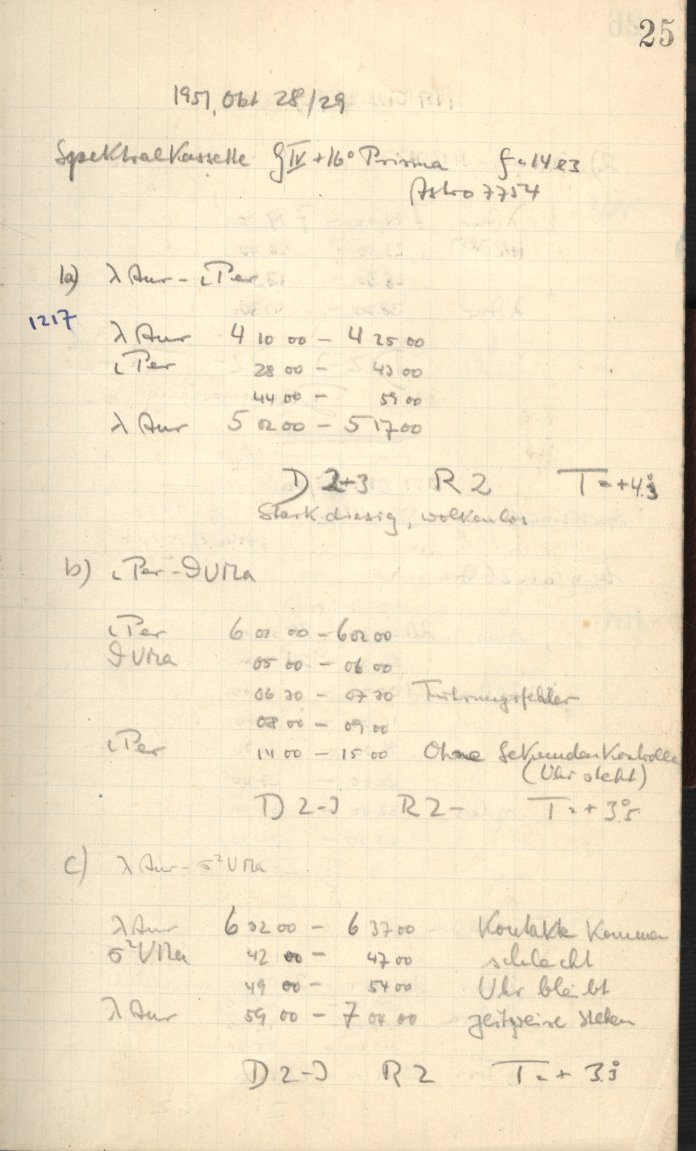 25
1951, Okt 28/29
Spektralkassette g IV + 16° Prisma f = 14.23
Astro 7754
a) λ Aur - ι Per
1217
λ Aur 4 10 00 - 4 25 00
ι Per 28 00 - 43 00
44 00 - 59 00
λ Aur 5 02 00 - 5 17 00
D 2-3 R 2 T = +4.°3
Stark diesig, wolkenlos
b) ι Per - ϑ UMa
ι Per 6 01 00 - 6 02 00
ϑ UMa 05 00 - 06 00
06 30 - 07 30 Führungsfehler
08 00 - 09 00
ι Per 14 00 - 15 00 Ohne Sekundenkontrolle
(Uhr steht)
D 2-3 R 2- T = +3.°5
c) λ Aur - σ² UMa
λ Aur 6 32 00 - 6 37 00 Kontakte kommen
σ² UMa 42 00 - 47 00 schlecht
49 00 - 54 00 Uhr bleibt
λ Aur 59 00 - 7 04 00 zeitweise stehen
D 2-3 R 2 T = +3.°3